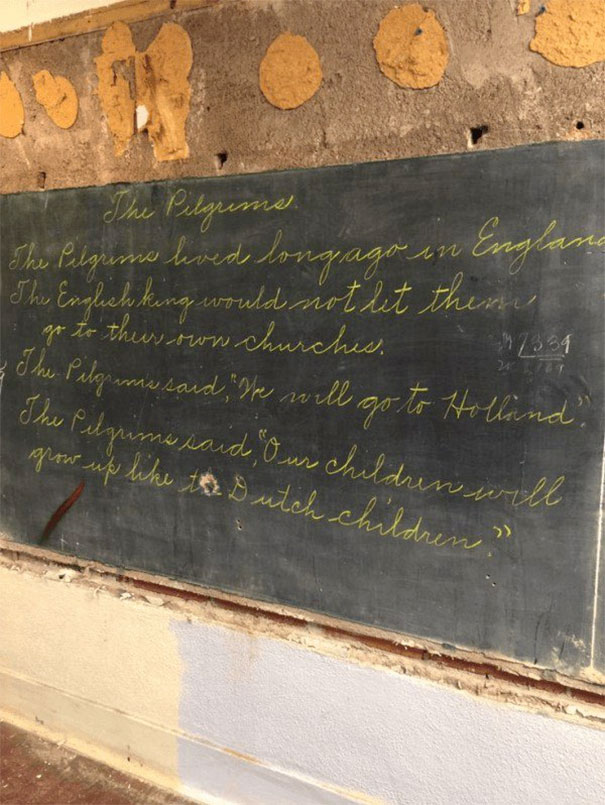 The Pilgrims.
The Pilgrims lived long ago in England
The English king would not let them
go to their own churches.
The Pilgrims said, "We will go to Holland".
The Pilgrims said, "Our children will
grow up like the Dutch children."
7339